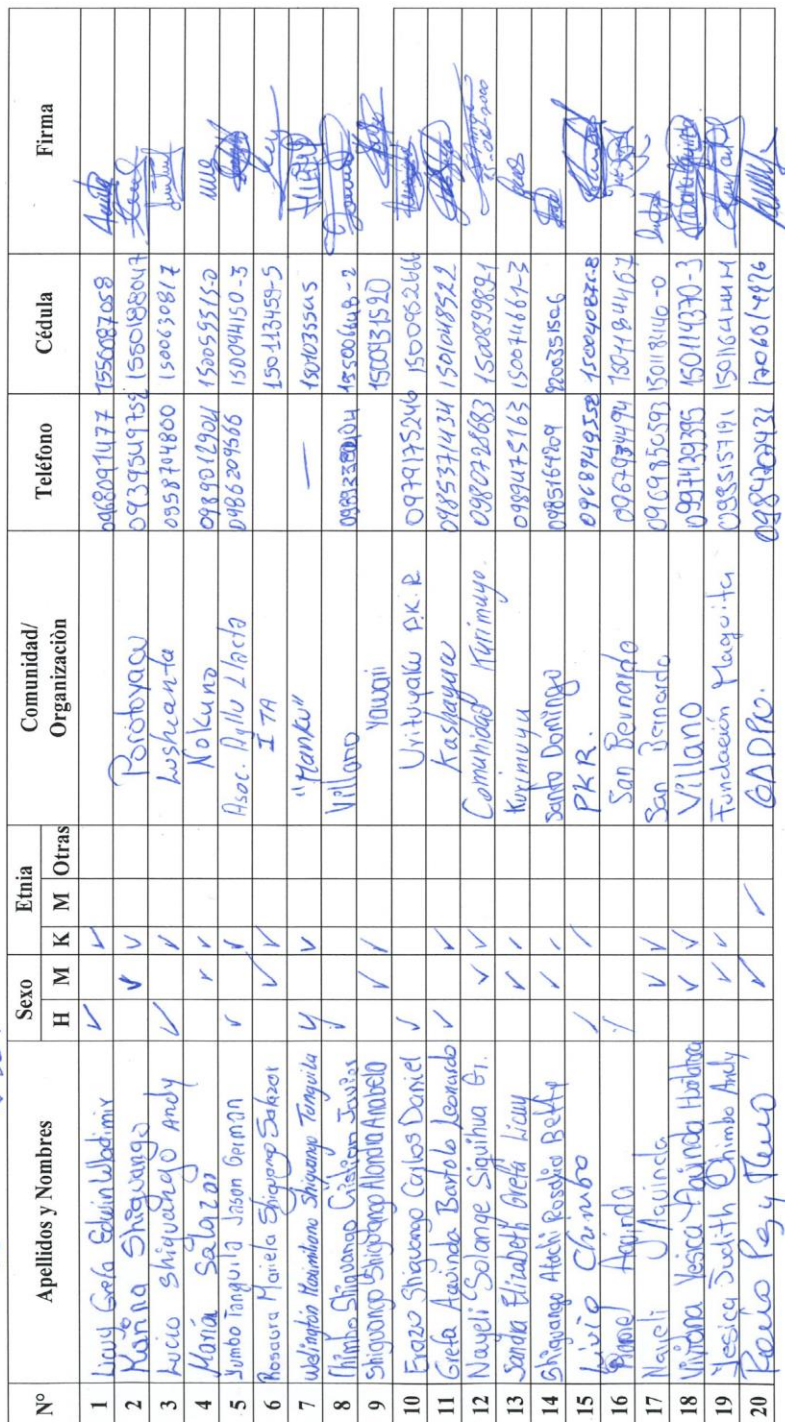 Nº Apellidos y Nombres Sexo Etnia Comunidad/ Organizaciòn Teléfono Cédula Firma
H M K M Otras
1 Licuy Grefa Edwin Wladimir ✓ ✓ 0968091477 1550087058
2 Karina Shiguango ✓ ✓ Porotoyacu 0939504975 1550188047
3 Lucio Shiguango Andy ✓ ✓ Lushcanta 0958704800 1500630817
4 María Salazar ✓ ✓ Nokuno 0989012904 150059515-0
5 Yumbo Tanguila Jason German ✓ ✓ Asoc. Ayllu Llacta 0986209566 150094150-3
6 Rosaura Mariela Shiguango Salazar ✓ ✓ ITA 150113459-5
7 Welington Maximiliano Shiguango Tanguila ✓ ✓ "Manku" — 1501035545
8 Chimbo Shiguango Cristian Javier ✓ Villano
9 Shiguango Shiguango Alondra Anabela ✓ ✓ Yawari 1500931520
10 Erazo Shiguango Carlos Daniel ✓ Urituyaku P.K.R 0979175246 1500826616
11 Grefa Aguinda Bartolo Leonardo ✓ ✓ Kashayacu 0985371434 1501048522
12 Nayeli Solange Siquihua G. ✓ ✓ Comunidad Kurimuyo. 0980728683 1500899891
13 Sandra Elizabeth Grefa Licuy ✓ ✓ Kurimuyu 0989475163 150074661-3
14 Shiguango Atachi Rosalia Betty ✓ ✓ Santo Domingo 0985164209 0200351506
15 Livio Chimbo ✓ ✓ PKR. 0968949552
16 Aguinda ✓ San Bernardo 0967934494 1501184467
17 Nayeli Aguinda ✓ ✓ San Bernardo 0969850593 150118440-0
18 Viviana Yesica Aguinda ✓ ✓ Villano 0997439395 150114370-3
19 Yesica Judith Chimbo Andy ✓ ✓ Fundación Maquita 0985157191
20 Rocio ✓ ✓ GADPN. 0984707431